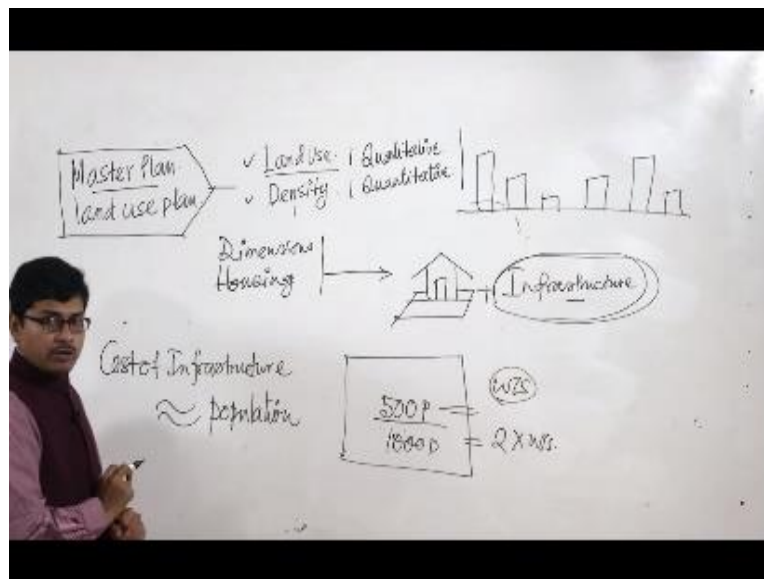 Master Plan
land use plan
✓ Land Use. | Qualitative
✓ Density. | Quantitative
Dimensions
Housing
Infrastructure
Cost of Infrastructure
≈ population
500 P =
1000 P = 2 X WS.